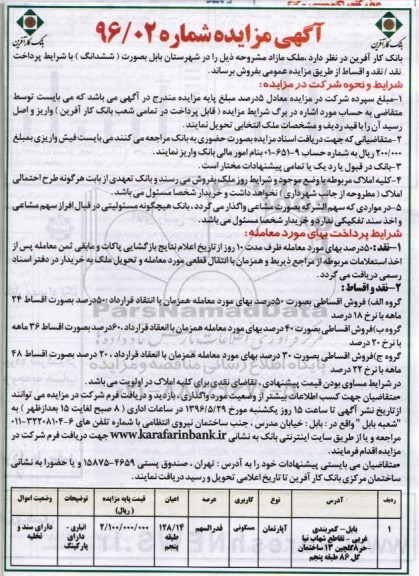 آگهی مزایده شماره ۹۶/۰۲
بانک کارآفرین
بانک کارآفرین
بانک کار آفرین در نظر دارد ،ملک مازاد مشروحه ذیل را در شهرستان بابل بصورت ( ششدانگ ) با شرایط پرداخت
نقد / نقد و اقساط از طریق مزایده عمومی بفروش برساند.
شرایط و نحوه شرکت در مزایده :
۱-مبلغ سپرده شرکت در مزایده معادل ۵درصد مبلغ پایه مزایده مندرج در آگهی می باشد که می بایست توسط
متقاضی به حساب مورد اشاره در برگ شرایط مزایده ( قابل پرداخت در تمامی شعب بانک کار آفرین ) واریز و اصل
رسید آن را با قید ردیف و مشخصات ملک انتخابی تحویل نمایند.
۲-متقاضیانی که جهت دریافت اسناد مزایده بصورت حضوری به بانک مراجعه می کنند می بایست فیش واریزی بمبلغ
۲۰۰/۰۰۰ ریال به شماره حساب ۹-۶۵۱-۰۱ بنام امور مالی بانک واریز نمایند.
۳-بانک در قبول یا رد یک یا تمامی پیشنهادات مختار است.
۴-کلیه املاک مربوطه با وضع موجود و شرایط روز ملک بفروش می رسند و بانک تعهدی از بابت هرگونه طرح احتمالی
املاک ( مطروحه از جانب شهرداری ) نخواهد داشت و خریدار شخصا مسئول می باشد.
۵-در مواردی که سهم الشرکه بصورت مشاعی واگذار می گردد، بانک هیچگونه مسئولیتی در قبال افراز سهم مشاعی
و اخذ سند تفکیکی ندارد و خریدار شخصا مسئول می باشد.
شرایط پرداخت بهای مورد معامله:
۱-نقد :۵۰درصد بهای مورد معامله ظرف مدت ۱۰ روز از تاریخ اعلام نتایج بازگشایی پاکات و مابقی ثمن معامله پس از
اخذ استعلامات مربوطه از مراجع ذیربط و همزمان با انتقال قطعی مورد معامله و تحویل ملک به خریدار در دفتر اسناد
رسمی دریافت می گردد.
۲-نقد و اقساط :
گروه الف) فروش اقساطی بصورت ۵۰درصد بهای مورد معامله همزمان با انعقاد قرارداد :۵۰درصد بصورت اقساط ۲۴
ماهه با نرخ ۱۸ درصد
گروه ب)فروش اقساطی بصورت ۴۰ درصد بهای مورد معامله همزمان با انعقاد قرارداد،۶۰درصد بصورت اقساط ۳۶ ماهه
با نرخ ۲۰ درصد
گروه ج)فروش اقساطی بصورت ۳۰ درصد بهای مورد معامله همزمان با انعقاد قرارداد ، ۷۰ درصد بصورت اقساط ۴۸
ماهه با نرخ ۲۲ درصد
در شرایط مساوی بودن قیمت پیشنهادی ، تقاضای نقدی برای کلیه املاک در اولویت می باشد.
*متقاضیان جهت کسب اطلاعات بیشتر از وضعیت مورد واگذاری ، بازدید و دریافت فرم شرکت در مزایده می توانند
از تاریخ نشر آگهی تا ساعت ۱۵ روز یکشنبه مورخ ۱۳۹۶/۵/۲۹ در ساعات اداری ( ۸ صبح لغایت ۱۵ بعدازظهر ) به
"شعبه بابل " واقع در : بابل : خیابان مدرس ، جنب ساختمان نیروی انتظامی با شماره تلفن های ۶-۳۲۲۰۸۱۰۴-۰۱۱
مراجعه و یا از طریق سایت اینترنتی بانک به نشانی www.karafarinbank.ir جهت دریافت فرم شرکت در
مزایده اقدام فرمایند.
*متقاضیان می بایستی پیشنهادات خود را به آدرس : تهران ، صندوق پستی ۴۶۵۹-۱۵۸۷۵ و یا حضورا به نشانی
ساختمان مرکزی بانک کار آفرین تا تاریخ اعلامی تحویل و رسید دریافت نمایند.
ردیف آدرس نوع کاربری عرصه اعیان قیمت پایه مزایده ( ریال) توضیحات وضعیت اموال
۱ بابل- کمربندی غربی - تقاطع شهاب نیا -حر۸گلچین ۱۳ ساختمان گل ۸۶ طبقه پنجم آپارتمان مسکونی قدرالسهم ۱۲۸/۱۴ طبقه پنجم ۲/۱۰۰/۰۰۰/۰۰۰ انباری - دارای پارکینگ دارای سند و تخلیه
ParsNamadData
پایگاه اطلاع رسانی مناقصه و مزایده